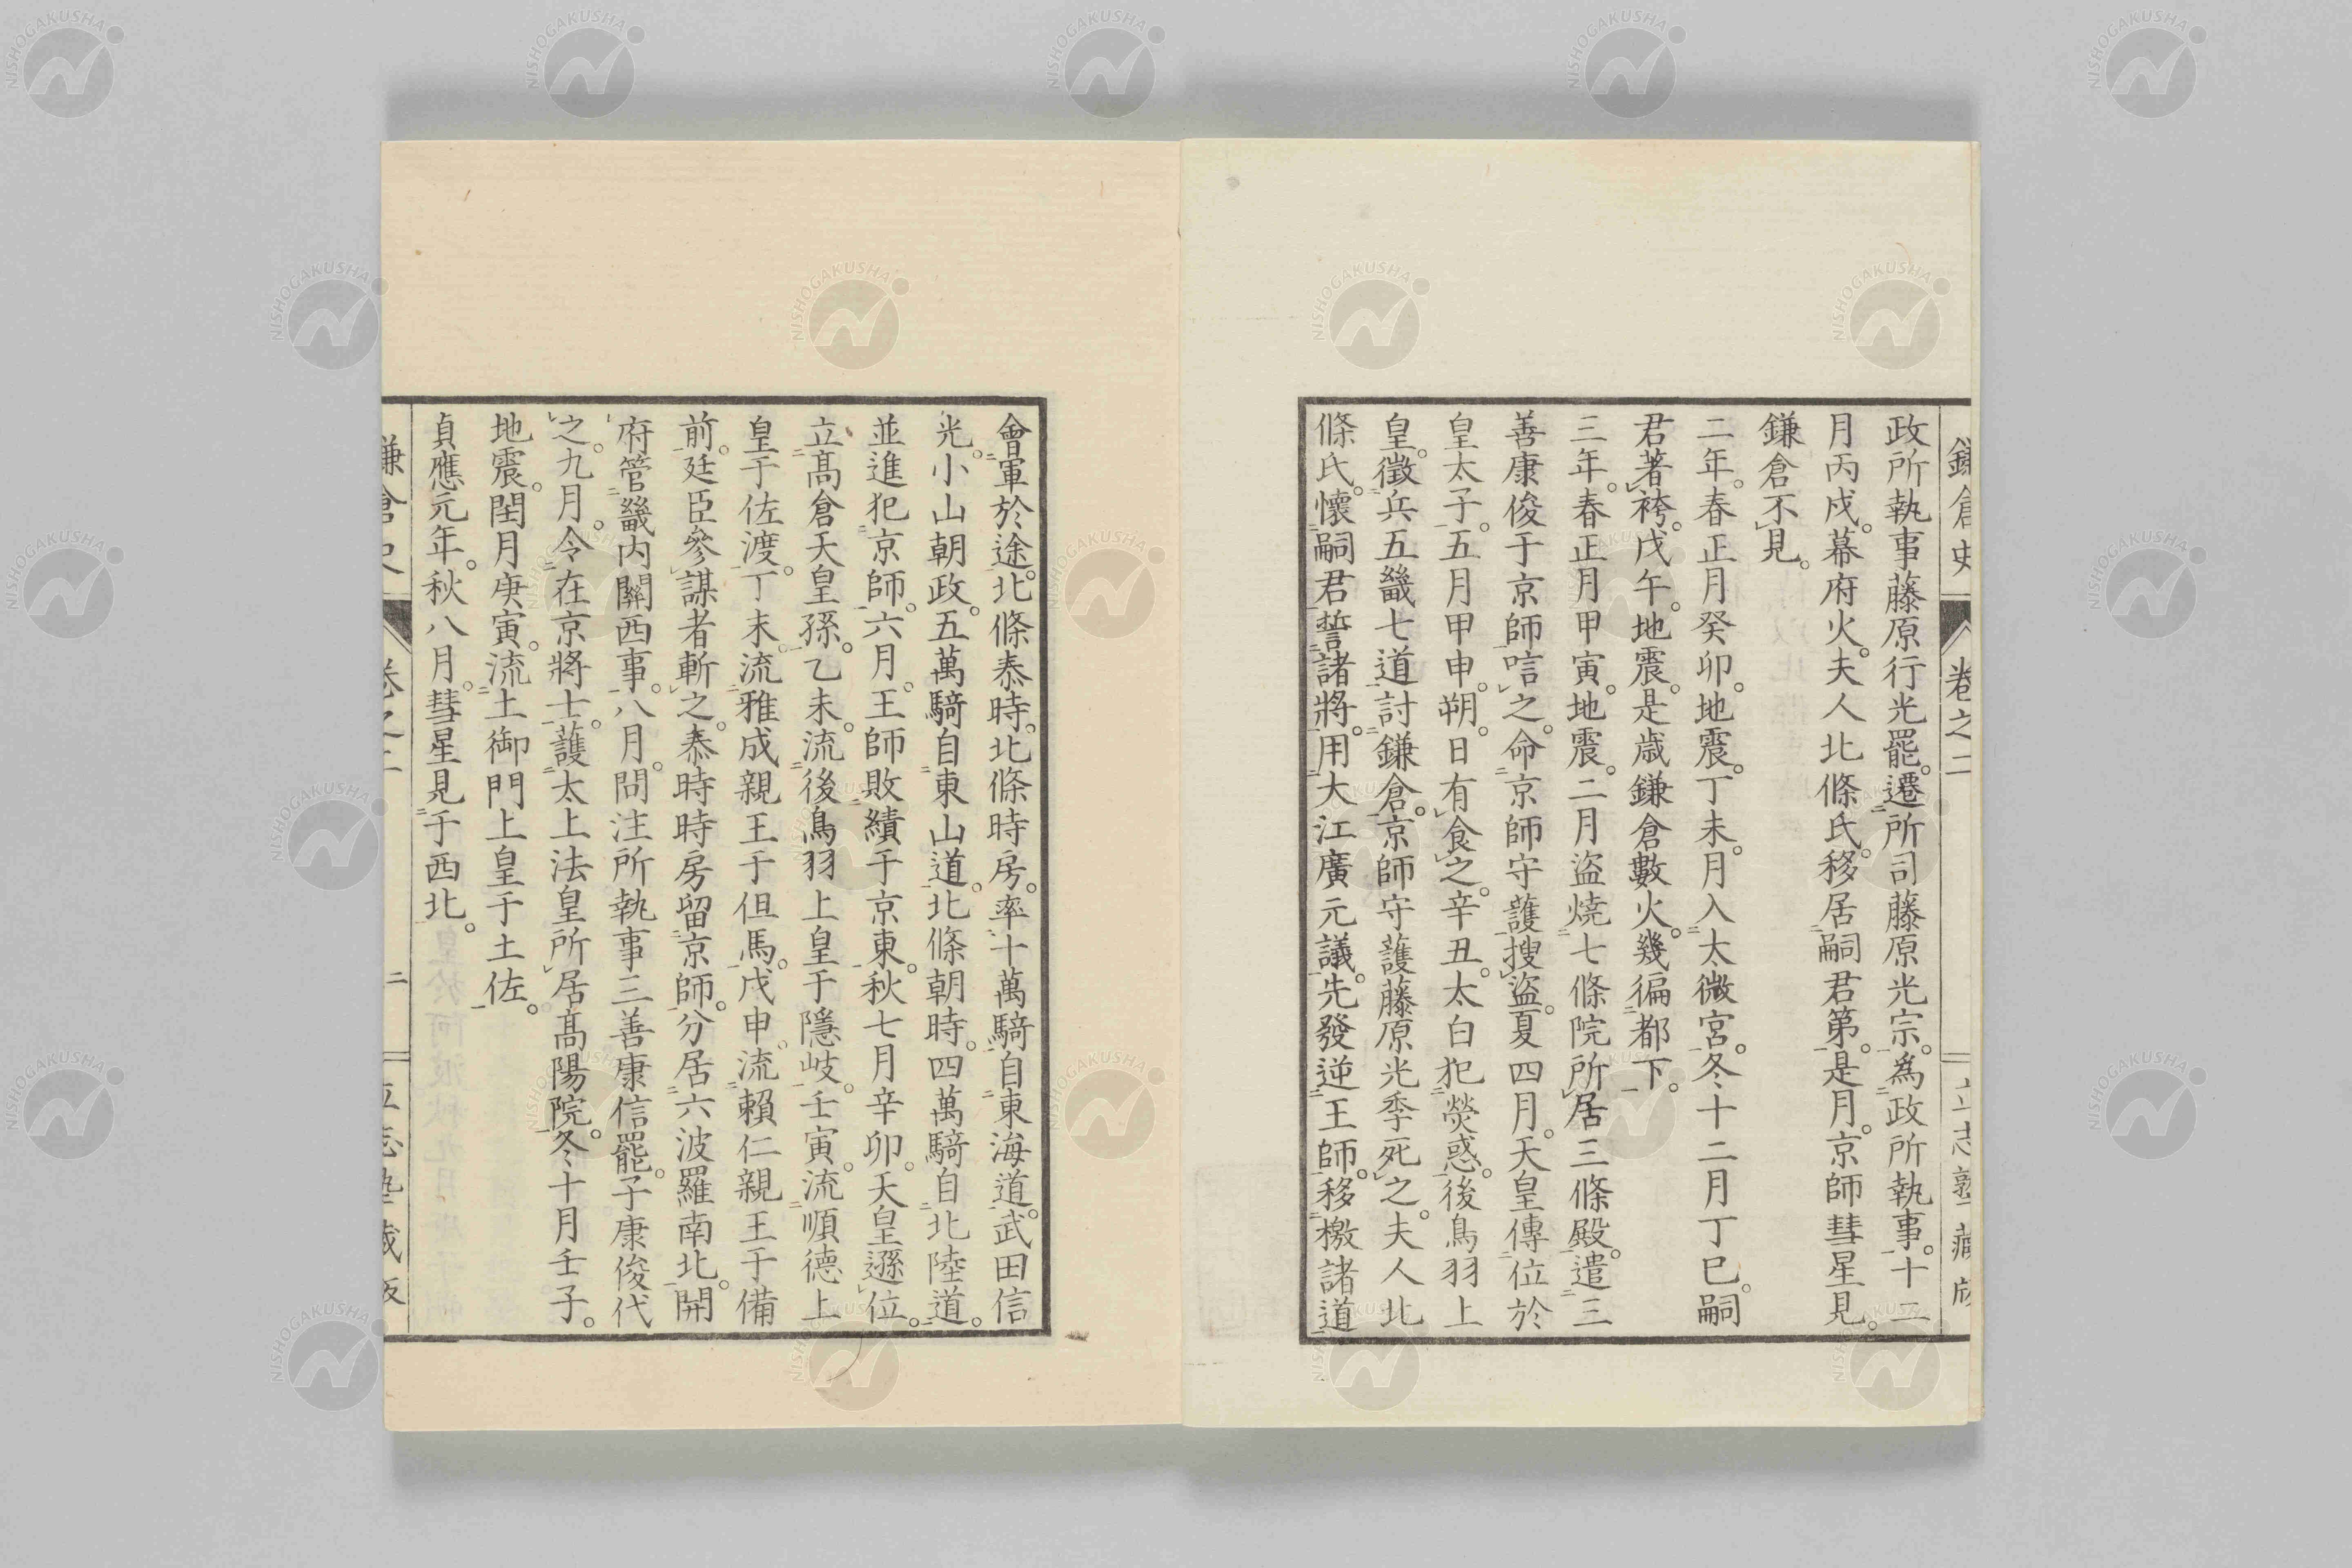 鎌倉史 卷之二 立志塾藏版
政所執事藤原行光罷。遷所司藤原光宗。爲政所執事。十二
月丙戌。幕府火。夫人北條氏。移居嗣君第。是月。京師彗星見。
鎌倉不見。
二年。春正月癸卯。地震。丁未。月入太微宮。冬十二月丁巳。嗣
君著袴。戊午。地震。是歳鎌倉數火。幾徧都下。
三年。春正月甲寅。地震。二月盜燒七條院所居三條殿。遣三
善康俊于京師唁之。命京師守護搜盜。夏四月。天皇傳位於
皇太子。五月甲申。朔。日有食之。辛丑。太白犯熒惑。後鳥羽上
皇。徵兵五畿七道討鎌倉。京師守護藤原光季死之。夫人北
條氏。懷嗣君誓諸將。用大江廣元議。先發逆王師。移檄諸道
會軍於途。北條泰時。北條時房。率十萬騎自東海道。武田信
光。小山朝政。五萬騎自東山道。北條朝時。四萬騎自北陸道。
並進犯京師。六月。王師敗績于京東。秋七月辛卯。天皇遜位。
立高倉天皇孫。乙未。流後鳥羽上皇于隱岐。壬寅。流順德上
皇于佐渡。丁未。流雅成親王于但馬。戊申。流賴仁親王于備
前。廷臣參謀者斬之。泰時時房留京師。分居六波羅南北。開
府管畿内關西事。八月。問注所執事三善康信罷。子康俊代
之。九月。令在京將士。護太上法皇所居高陽院。冬十月壬子。
地震。閏月庚寅。流土御門上皇于土佐。
貞應元年。秋八月。彗星見于西北。
鎌倉史 卷之二 二 立志塾藏版
NISHOGAKUSHA